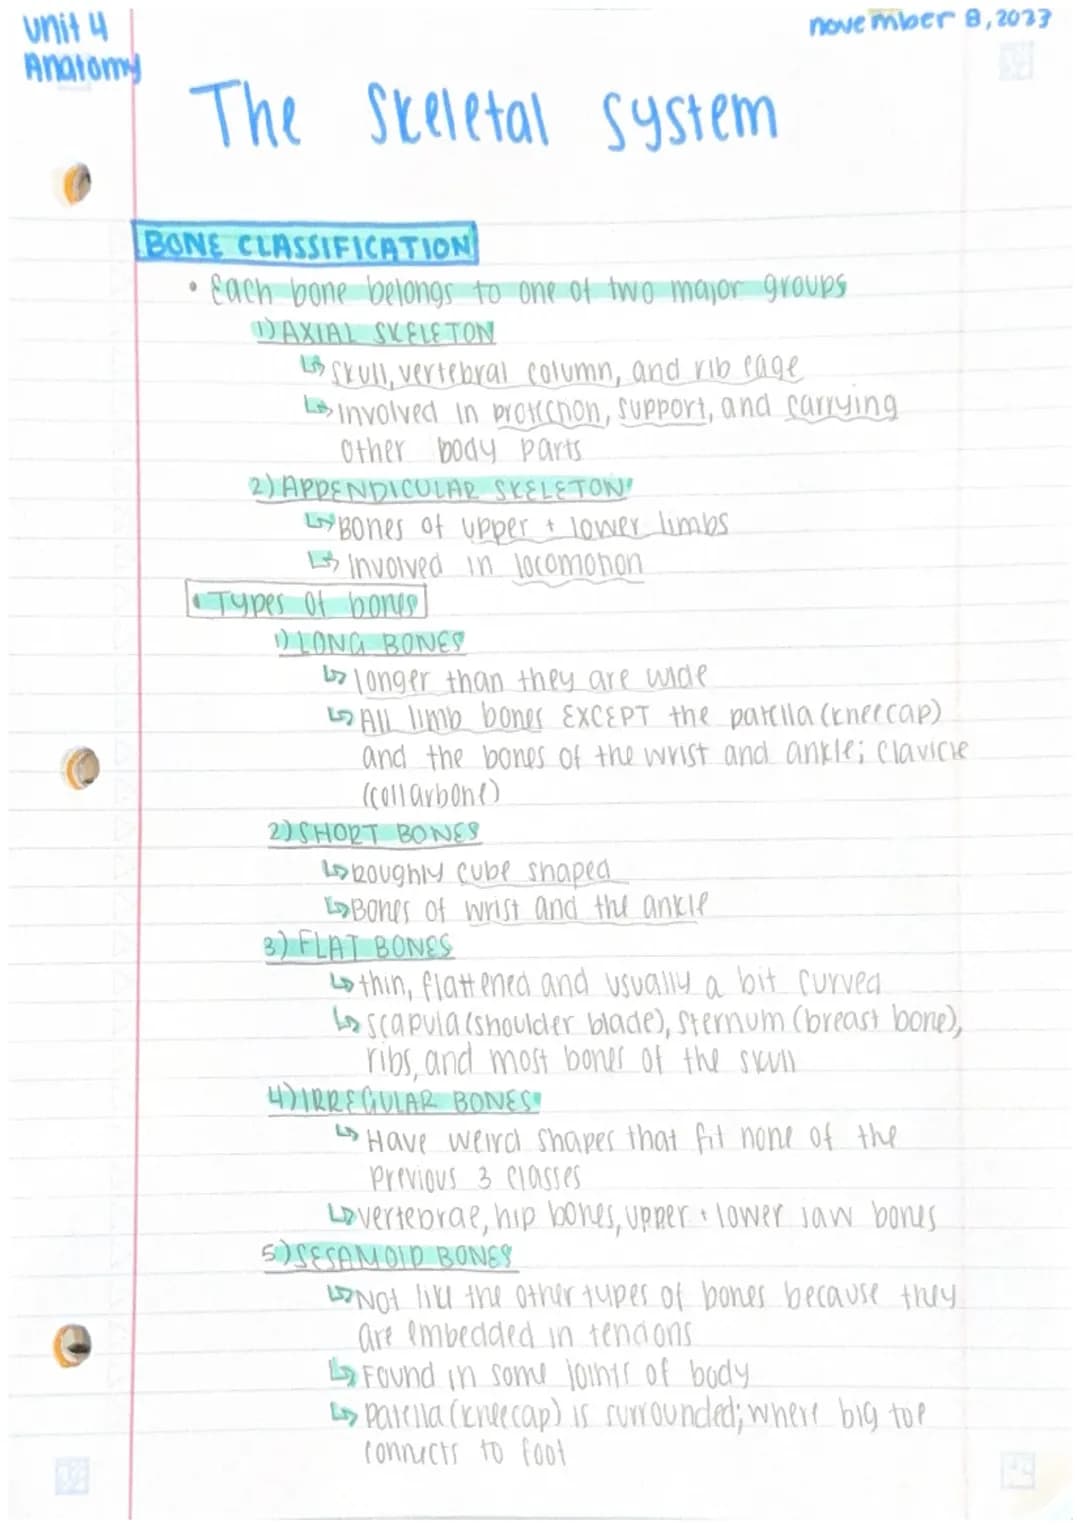 Unit 4
Anatomy
november 8, 2023
The Skeletal System
BONE CLASSIFICATION
• Each bone belongs to one of two major groups
1) AXIAL SKELETON
↳ Skull, vertebral column, and rib cage
↳ Involved in protection, support, and carrying
other body parts
2) APPENDICULAR SKELETON
↳ Bones of upper + lower limbs
↳ Involved in locomotion
• Types of bones
1) LONG BONES
↳ longer than they are wide
↳ All limb bones EXCEPT the patella (kneecap)
and the bones of the wrist and ankle; clavicle
(collarbone)
2) SHORT BONES
↳ Roughly cube shaped
↳ Bones of wrist and the ankle
3) FLAT BONES
↳ thin, flattened and usually a bit curved
↳ scapula (shoulder blade), sternum (breast bone),
ribs, and most bones of the skull
4) IRREGULAR BONES
↳ Have weird shapes that fit none of the
previous 3 classes
↳ vertebrae, hip bones, upper + lower jaw bones
5) SESAMOID BONES
↳ Not like the other types of bones because they
are embedded in tendons
↳ Found in some joints of body
↳ Patella (kneecap) is surrounded; where big toe
connects to foot